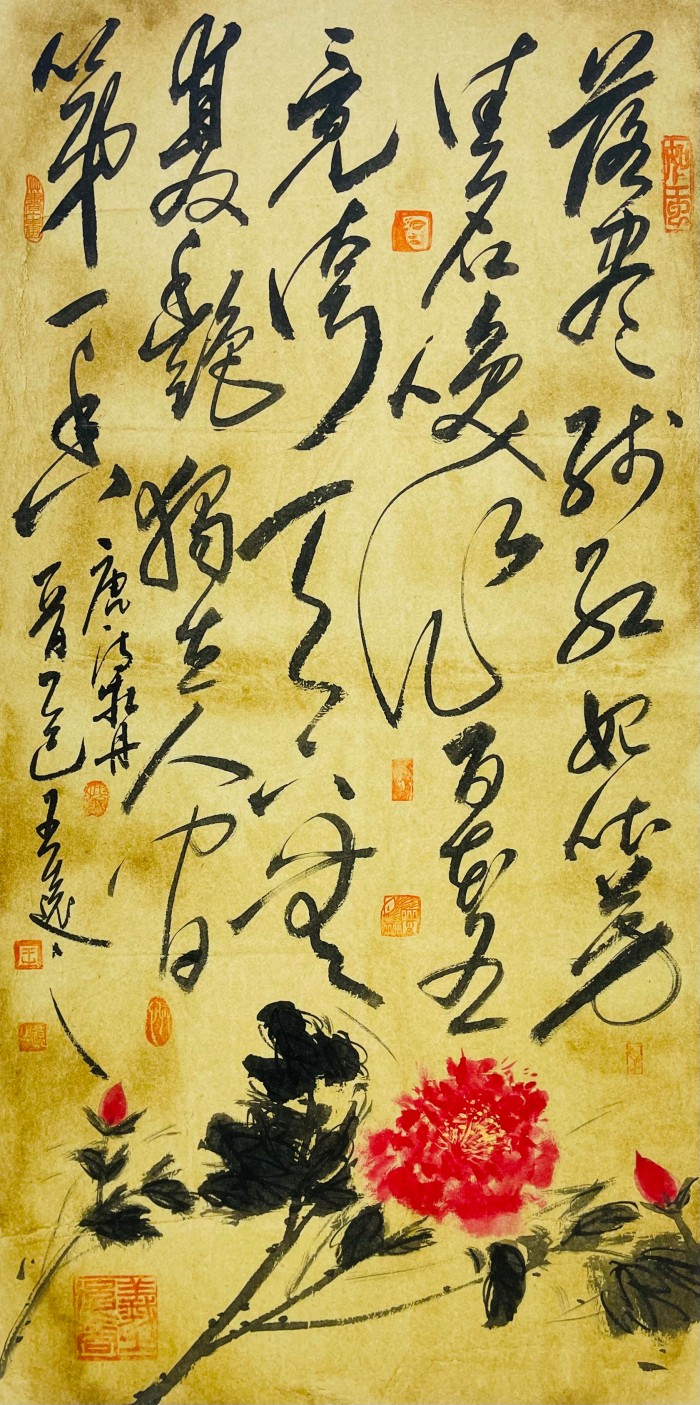 落尽残红始吐芳
佳名唤作百花王
竞夸天下無
双艳獨立人间
第一香
唐诗牡丹
乙巳王